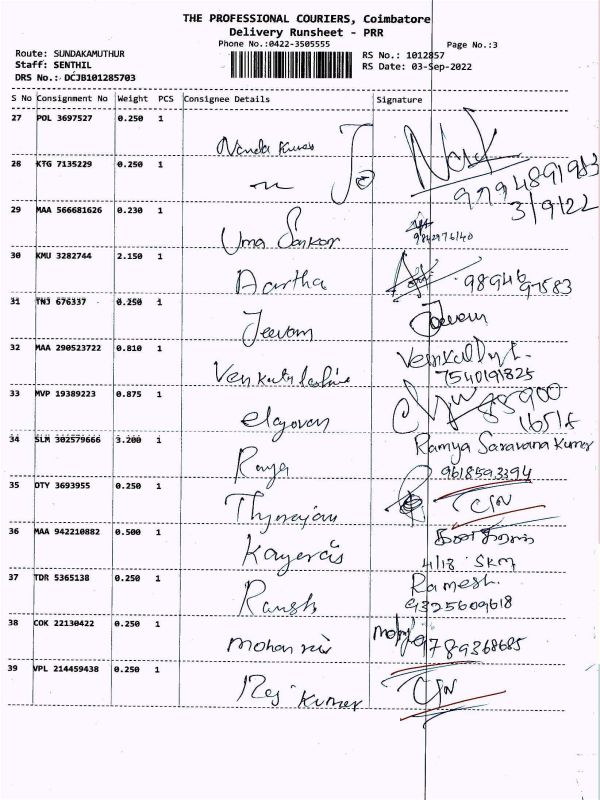 THE PROFESSIONAL COURIERS, Coimbatore
Delivery Runsheet - PRR
Phone No.:0422-3505555
Page No.:3
Route: SUNDAKAMUTHUR
RS No.: 1012857
Staff: SENTHIL
RS Date: 03-Sep-2022
DRS No.: DCJB101285703
S No Consignment No Weight PCS Consignee Details Signature
27 POL 3697527 0.250 1
Nanda Kumar
9794891983
3/9/22
28 KTG 7135229 0.250 1
29 MAA 566681626 0.230 1
Uma Sankar
9842976140
30 KMU 3282744 2.150 1
Aartha 98946 97583
31 TNJ 676337 0.250 1
Jeevan Jeevan
32 MAA 290523722 0.810 1
7540191825
33 MVP 19389223 0.875 1
elagovan
34 SLM 302579666 3.200 1
Ramya Saravana Kumar
Ramya
9618593394
35 DTY 3693955 0.250 1
36 MAA 942210882 0.500 1
4/18 SKM
37 TDR 5365138 0.250 1
Ramesh
9325609618
38 COK 22130422 0.250 1
9789368685
39 VPL 214459438 0.250 1
Raj Kumar